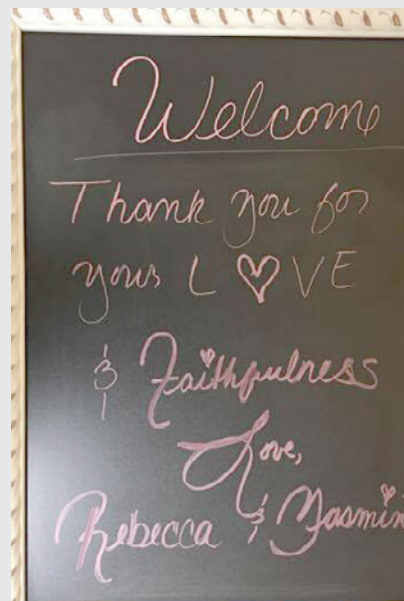 Welcome
Thank you for
your L♡VE
& Faithfulness
Love,
Rebecca & Yasmin